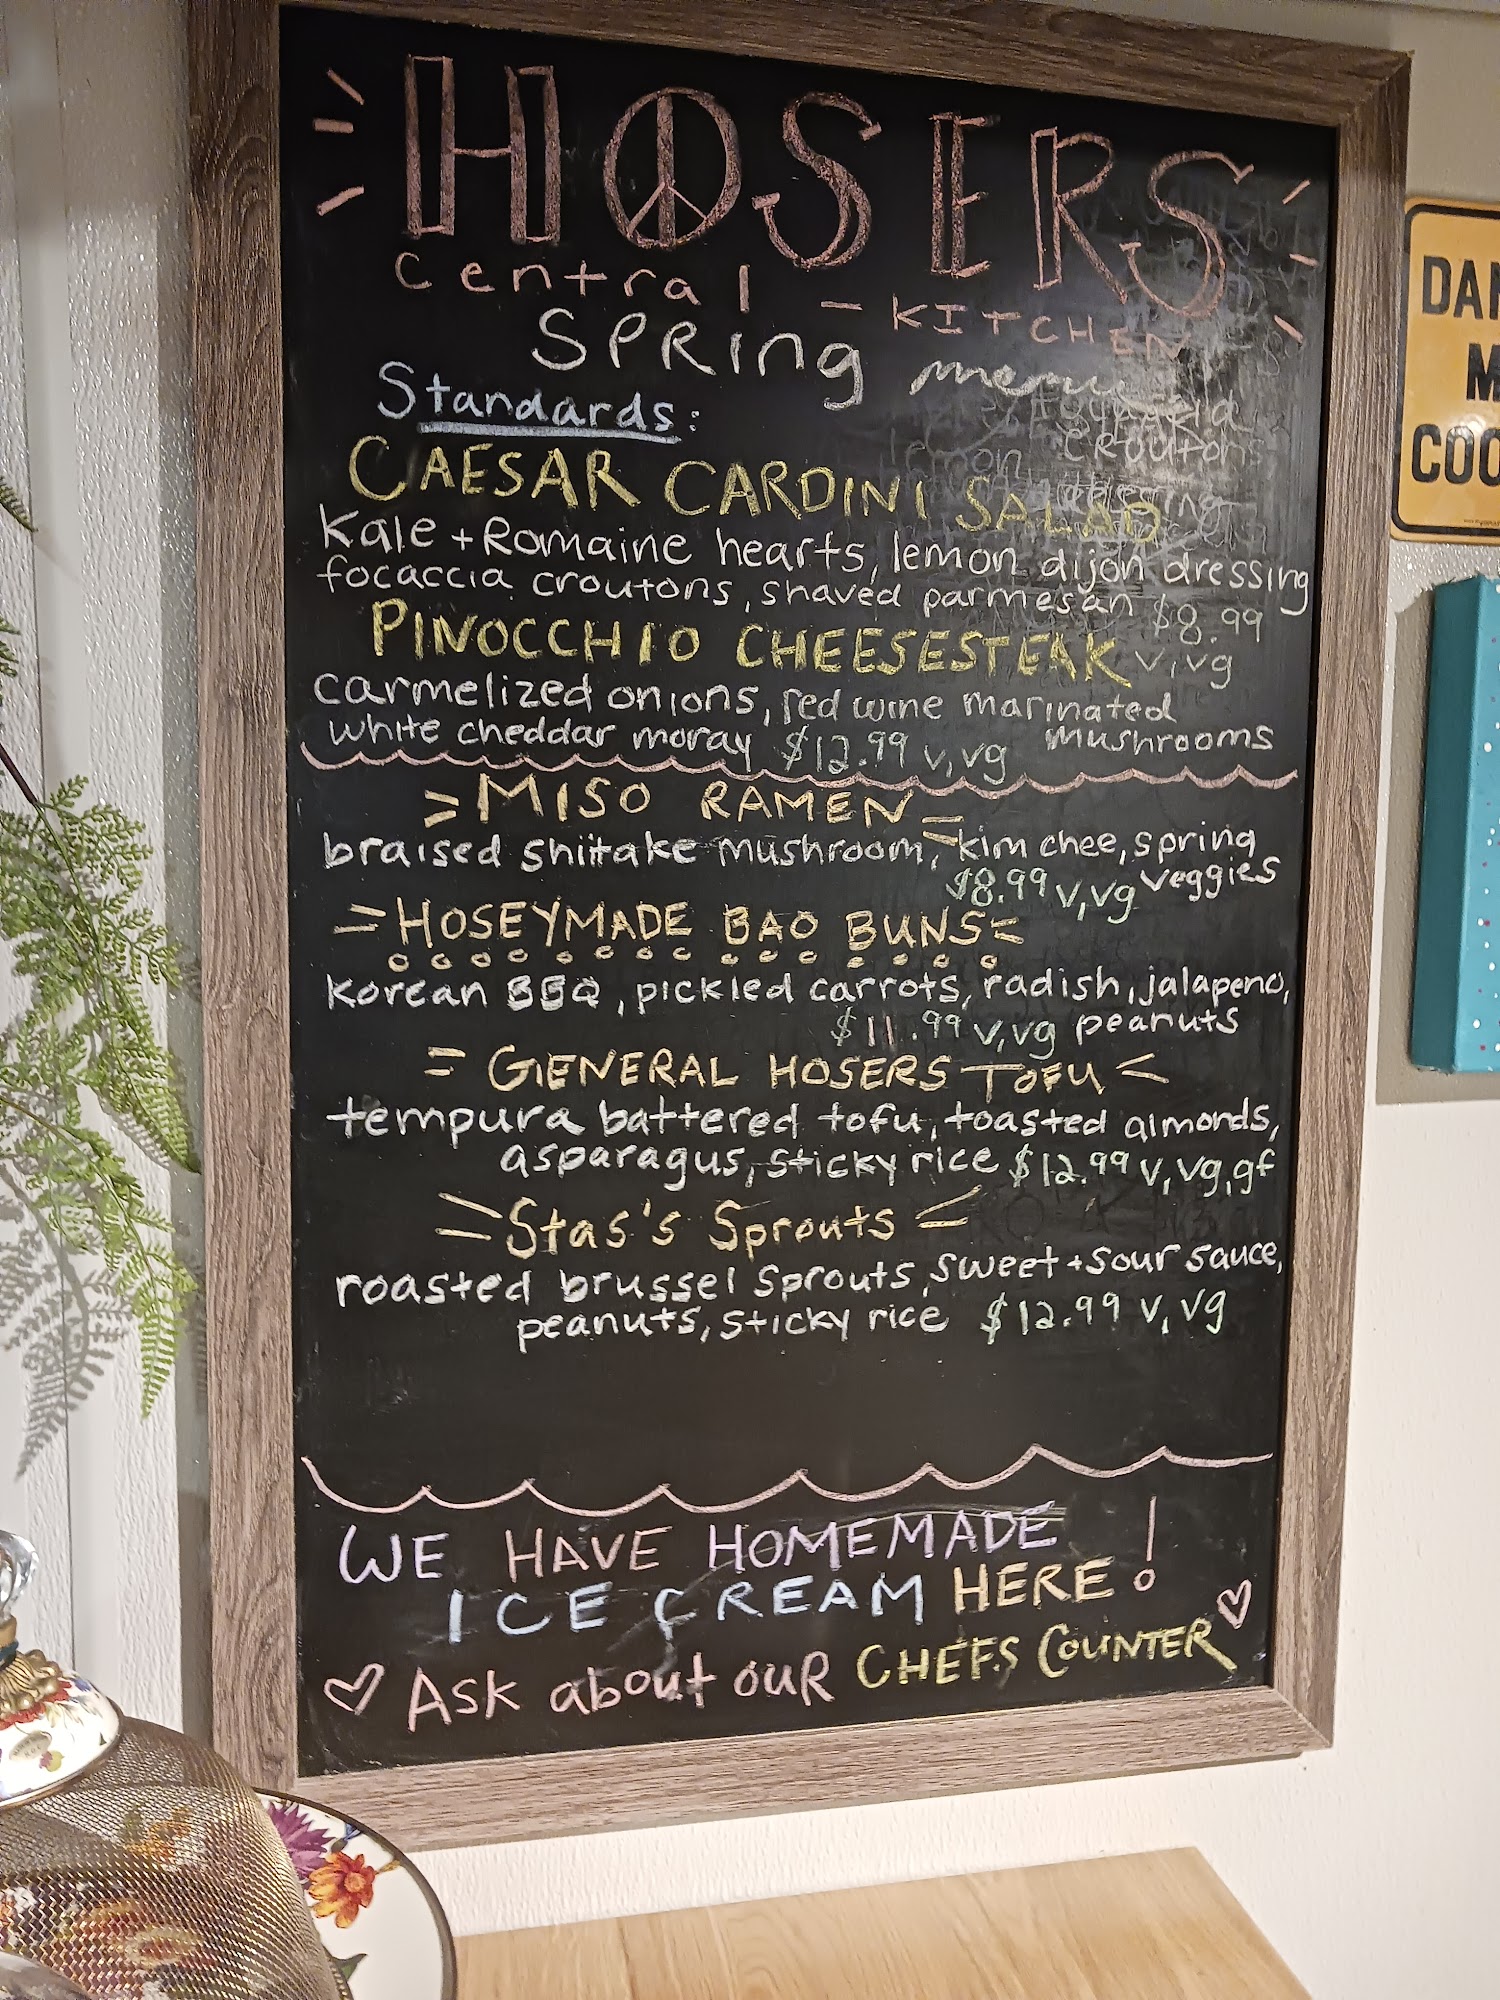 HOSERS
central - KITCHEN
SPRing menu
Standards:
CAESAR CARDINI SALAD
Kale + Romaine hearts, lemon dijon dressing
focaccia croutons, shaved parmesan $8.99
PINOCCHIO CHEESESTEAK v, vg
carmelized onions, red wine marinated
white cheddar moray $12.99 v, vg mushrooms
MISO RAMEN
braised shiitake mushroom, kim chee, spring
$8.99 v, vg veggies
HOSEYMADE BAO BUNS
korean BBQ, pickled carrots, radish, jalapeno,
$11.99 v, vg peanuts
GENERAL HOSERS TOFU
tempura battered tofu, toasted almonds,
asparagus, sticky rice $12.99 v, vg, gf
Stas's Sprouts
roasted brussel sprouts, sweet + sour sauce,
peanuts, sticky rice $12.99 v, vg
WE HAVE HOMEMADE
ICE CREAM HERE!
Ask about our CHEFS COUNTER
DAN
M
COO